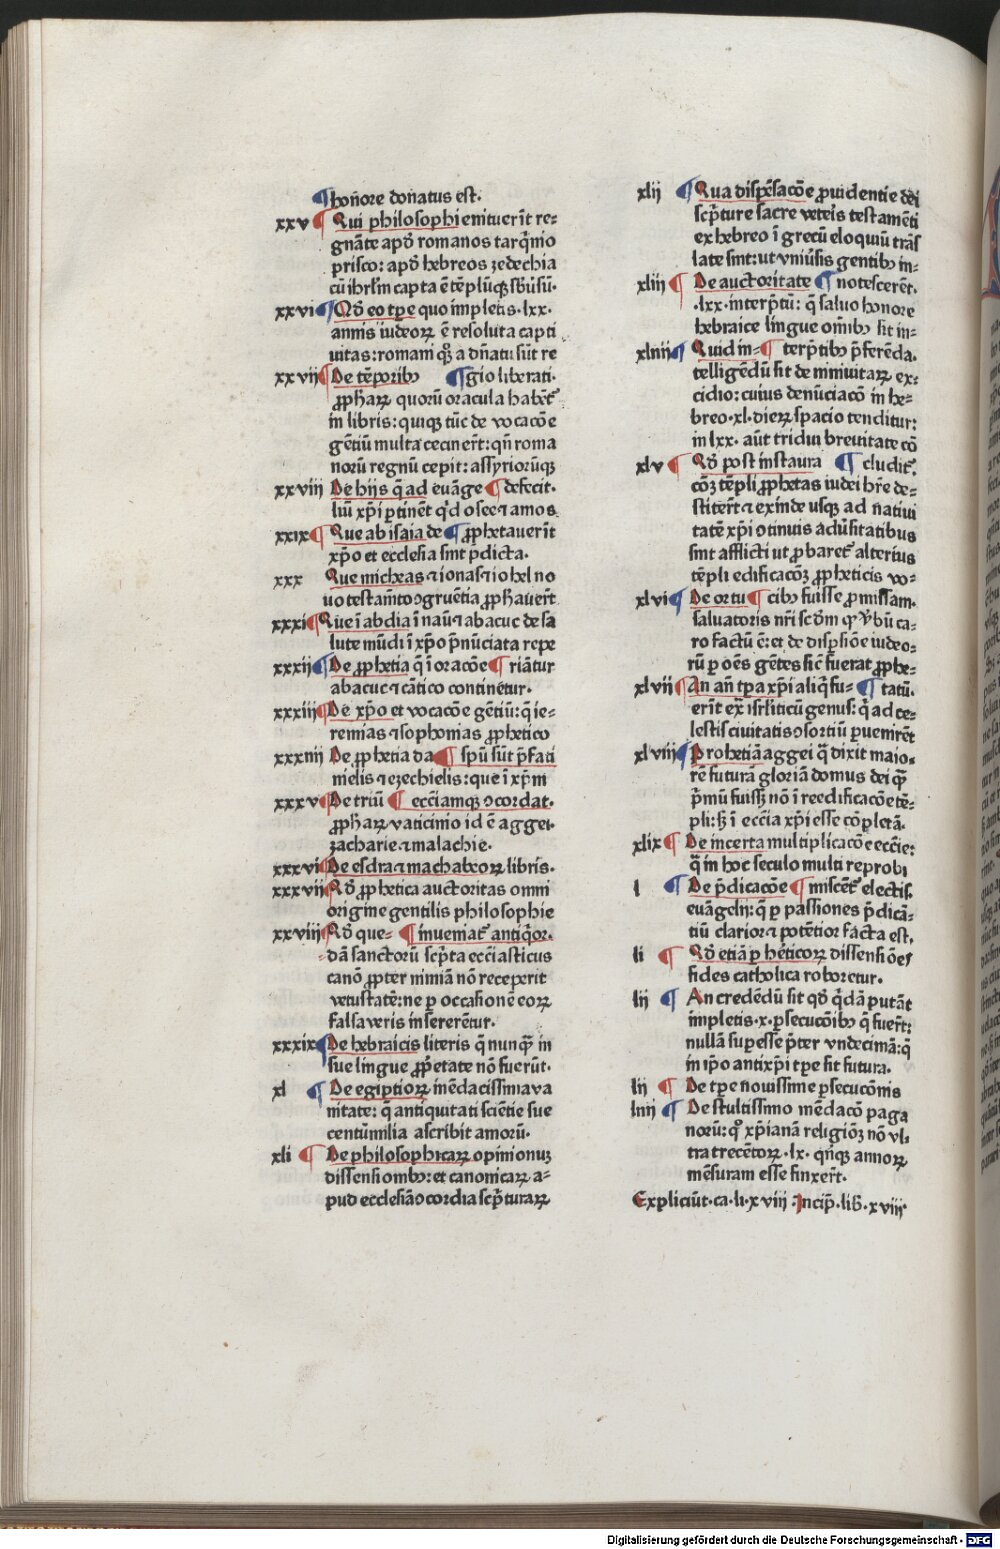 ¶ honore donatus est.
xxv ¶ Qui philosophi enituerīt re⸗
gnāte apđ romanos tarq̄nio
prisco: apđ hebreos zedechia
cū ihrl̄m capta ē tēplūqꝫ sb̄ūsū.
xxvi ¶ Qđ eo tꝑe quo impletis .lxx.
annis iudeoꝝ ē resoluta capti
uitas: romani qꝫ a dn̄atu sūt re
xxvii ¶ De tēporibꝫ ¶ gio liberati.
ꝓpħaꝝ quorū oracula habēt᷑
in libris: quiqꝫ tūc de vocacōe
gētiū multa cecinert̄: qn̄ roma
norū regnū cepit: assyriorūqꝫ
xxviii De hijs q̄ ad euāge ¶ defecit.
liū xp̄i ꝑtinēt qđ osee ⁊ amos
xxix ¶ Que ab isaia de ¶ ꝓphetauerīt
xp̄o et ecclesia sint p̄dicta.
xxx Que micheas ⁊ ionas ⁊ iohel no
uo testam̄to ꝯgruētia ꝓpħauert̄
xxxi ¶ Que ī abdia ī naū ⁊ abacuc de sa
lute mūdi ī xp̄o p̄nūciata repe
xxxii ¶ De ꝓphetia q̄ ī oracōe ¶ riātur
abacuc ⁊ cātico continētur.
xxxiii ¶ De xp̄o et vocacōe gētiū: q̄ ie⸗
remias ⁊ sophonias ꝓphetico
xxxiiii De ꝓphetia da ¶ spū sūt p̄fati
nielis ⁊ ezechielis: que ī xp̄m
xxxv ¶ De triū ¶ ecc̄iamqꝫ ꝯcordat.
ꝓpħaꝝ vaticinio id ē aggei.
zacharie ⁊ malachie.
xxxvi ¶ De esdra ⁊ machabeoꝝ libris.
xxxvii ¶ Qđ ꝓphetica auctoritas omni
origine gentilis philosophie
xxviii ¶ Qđ que⸗ ¶ inueniat᷑ antiq̄or.
dā sanctorū scp̄ta ecc̄iasticus
canō ꝓpter nimiā nō receperit
vetustatē: ne ꝑ occasionē eoꝝ
falsa veris insererētur.
xxxix ¶ De hebraicis literis q̄ nunqꝫ̄ in
sue lingue ꝓpetate nō fuerūt.
xl ¶ De egiptioꝝ mēdacissima va
nitate: q̄ antiquitati sciētie sue
centūmilia ascribit amorū.
xli ¶ De philosophicaꝝ opinionuꝫ
dissensiombꝫ: et canonicaꝝ a⸗
pud ecclesiā ꝯcordia scp̄turaꝝ
xlij ¶ Qua dispēsacōe ꝓuidentie dei
scp̄ture sacre veteis testamēti
ex hebreo ī grecū eloquiū trās
late sint: ut vniūsis gentibꝫ in⸗
xliij ¶ De auctoritate ¶ notescerēt.
.lxx. interp̄tū: q̄ saluo honore
hebraice lingue om̄ibꝫ sit in⸗
xliiij ¶ Quid in⸗ ¶ terp̄tibꝫ p̄ferēda.
telligēdū sit de niniuitaꝝ ex⸗
cidio: cuius denūciacō in he⸗
breo .xl. dieꝝ spacio tenditur:
in lxx. aūt tridui breuitate cō
xlv ¶ Qđ post instaura ¶ cludit᷑.
cōꝫ tēpli ꝓphetas iudei hr̄e de⸗
stiter̄t ⁊ exinde usqꝫ ad natiui
tatē xp̄i ꝯtinuis adūsitatibus
sint afflicti ut ꝓbaret᷑ alterius
tēpli edificacōꝫ ꝓpheticis vo⸗
xlvi ¶ De ortu ¶ cibꝫ fuisse ꝓmissam.
saluatoris nr̄i scđm qꝫ vb̄ū ca⸗
ro factū ē: et de disꝑsiōe iudeo⸗
rū ꝑ oēs gētes sic̄ fuerat ꝓphe⸗
xlvii ¶ An an̄ tꝑa xp̄i aliq̄ fu⸗ ¶ tatū.
erīt ex̄ isrl̄iticū genus: q̄ ad ce⸗
lestis ciuitatis ꝯsortiū ꝑuenirēt
xlviii ¶ Prohetiā aggei q̄ dixit maio⸗
rē futurā gloriā domus dei qꝫ̄
p̄mū fuissꝫ nō ī reedificacōe tē⸗
pli: sꝫ ī ecc̄ia xp̄i esse cōpletā.
xlix ¶ De incerta multiplicacōe ecc̄ie:
q̄ in hoc seculo multi reprobi
l ¶ De p̄dicacōe ¶ miscēt᷑ electis.
euāgelij: q̄ ꝑ passiones p̄dicā⸗
tiū clarior ⁊ potētior fācta est.
li ¶ Qđ etiā ꝑ héticoꝝ dissensiōes
fides catholica roboretur.
lij ¶ An credēdū sit qđ q̄dā putāt
impletis .x. ꝑsecucōibꝫ q̄ fuert̄:
nullā suꝑesse p̄ter vndecimā: q̄
in ip̄o antixp̄i tꝑe sit futura.
lij ¶ De tꝑe nouissime ꝑsecucōnis
liiij ¶ De stultissimo mēdacō paga
norū: qꝫ xp̄ianā religiōꝫ nō vl⸗
tra trecētoꝝ .lx. qn̄qꝫ annoꝝ
mēsuram esse finxert̄.
Expliciūt .ca. li. xviii. Incip̄ .lib̄ .xviii.
Digitalisierung gefördert durch die Deutsche Forschungsgemeinschaft - DFG